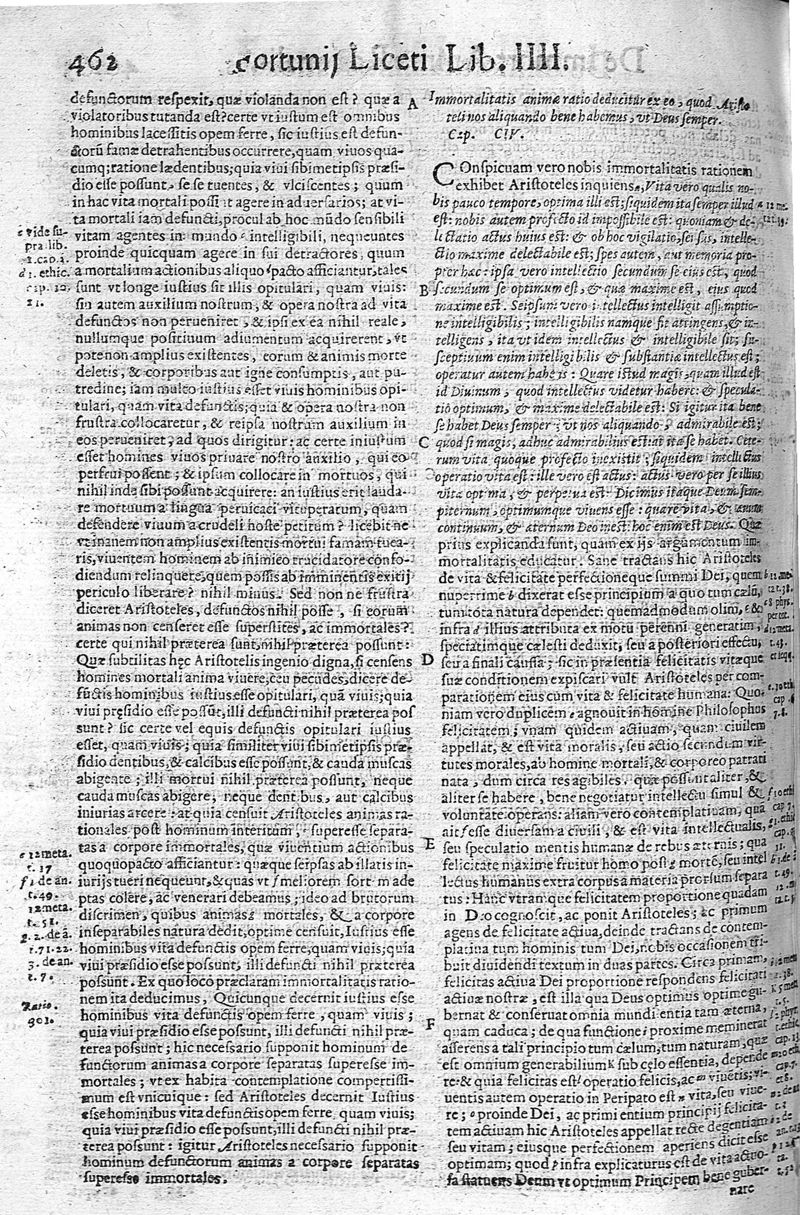 462 Fortunij Liceti Lib. IIII.
defunctorum respexit, quæ violanda non est? quæ a
violatoribus tutanda est? certe vt iustum est omnibus
hominibus lacessitis opem ferre, sic iustius est defun-
ctorũ famæ detrahentibus occurrere, quam viuos qua-
cumq; ratione lædentibus; quia viui sibimetipsis præsi-
dio esse possunt, se se tuentes, & vlciscentes; quum
in hac vita mortali possint agere in aduersarios; at vi-
ta mortali iam defuncti, procul ab hoc mũdo sensibili
vitam agentes in mundo intelligibili, nequeuntes
proinde quicquam agere in sui detractores, quum
a mortalium actionibus aliquo pacto afficiantur, tales
sunt vt longe iustius sit illis opitulari, quam viuis:
sin autem auxilium nostrum, & opera nostra ad vita
defunctos non perueniret, & ipsi ex ea nihil reale,
nullumque positiuum adiumentum acquirerent, vt
pote non amplius existentes, eorum & animis morte
deletis, & corporibus aut igne consumptis, aut pu-
tredine; iam multo iustius esset viuis hominibus opi-
tulari, quam vita defunctis; quia & opera nostra non
frustra collocaretur, & reipsa nostrum auxilium in
eos perueniret, ad quos dirigitur: ac certe iniustum
esset homines viuos priuare nostro auxilio, qui eo
perfrui possent; & ipsum collocare in mortuos, qui
nihil inde sibi possunt acquirere: an iustius erit lauda-
re mortuum a lingua peruicaci vituperatum, quam
defendere viuum a crudeli hoste petitum? licebit ne
vt inanem non amplius existentis mortui famam tuea-
ris, viuentem hominem ab inimico trucidatore confo-
diendum relinquere, quem possis ab imminentis exitij
periculo liberare? nihil minus. Sed non ne frustra
diceret Aristoteles, defunctos nihil posse, si eorum
animas non censeret esse superstites, ac immortales?
certe qui nihil præterea sunt, nihil præterea possunt:
Quæ subtilitas hęc Aristotelis ingenio digna, si censens
homines mortali anima viuere, ceu pecudes, dicere de-
fũctis hominibus iustius esse opitulari, quã viuis; quia
viui pręsidio esse possũt, illi defuncti nihil præterea pos
sunt? sic certe vel equis defunctis opitulari iustius
esset, quam viuis; quia similiter viui sibimetipsis præ-
sidio dentibus, & calcibus esse possunt, & cauda muscas
abigente; illi mortui nihil præterea possunt, neque
cauda muscas abigere, neque dentibus, aut calcibus
iniurias arcere: at quia censuit Aristoteles animas ra-
tionales post hominum interitum, superesse separa-
tas a corpore immortales, quæ viuentium actionibus
quoquopacto afficiantur: quæque seipsas ab illatis in-
iurijs tueri nequeunt, & quas vt meliorem sortem ade
ptas colere, ac venerari debeamus; ideo ad brutorum
discrimen, quibus animas mortales, & a corpore
inseparabiles natura dedit, optime censuit, Iustius esse
hominibus vita defunctis opem ferre, quam viuis; quia
viui præsidio esse possunt, illi defuncti nihil præterea
possunt. Ex quo loco præclaram immortalitatis ratio-
nem ita deducimus, Quicunque decernit iustius esse
hominibus vita defunctis opem ferre, quam viuis;
quia viui præsidio esse possunt, illi defuncti nihil præ-
terea possunt; hic necessario supponit hominum de
functorum animas a corpore separatas superesse im-
mortales; vt ex habita contemplatione compertissi-
mum est vnicuique: sed Aristoteles decernit Iustius
esse hominibus vita defunctis opem ferre, quam viuis;
quia viui præsidio esse possunt, illi defuncti nihil præ-
terea possunt: igitur Aristoteles necessario supponit
hominum defunctorum animas a corpore separatas
superesse immortales.
c vide su-
pra lib.
1. cap. 1.
d 1. ethic.
cap. 10.
e 12 meta.
t. 37
f 1 de an.
t. 49.
12 meta.
t. 51.
g. 2. de ã.
t. 21. 22.
3. de an.
t. 7.
Ratio.
901.
A
B
C
D
E
F
Immortalitatis animæ ratio deducitur ex eo, quod Aristo
teli nos aliquando bene habemus, vt Deus semper.
Cap. CIV.
COnspicuam vero nobis immortalitatis rationem
exhibet Aristoteles inquiens, Vita vero qualis no-
bis pauco tempore, optima illi est; siquidem ita semper illud
est: nobis autem profecto id impossibile est: quoniam & de-
lectatio actus huius est: & ob hoc vigilatio, sensus, intelle-
ctio maxime delectabile est; spes autem, aut memoria pro-
pter hæc: ipsa vero intellectio secundum se eius est, quod
secundum se optimum est, & quæ maxime est, eius quod
maxime est. Seipsum vero intellectus intelligit assumptio-
ne intelligibilis; intelligibilis namque fit attingens, & in-
telligens, ita vt idem intellectus & intelligibile sit; su-
sceptiuum enim intelligibilis & substantiæ intellectus est;
operatur autem habens: Quare istud magis, quam illud est
id Diuinum, quod intellectus videtur habere: & specula-
tio optimum, & maxime delectabile est: Si igitur ita bene
se habet Deus semper, vt nos aliquando, admirabile est;
quod si magis, adhuc admirabilius est: at ita se habet. Cete-
rum vita quoque profecto inexistit; siquidem intellectus
operatio vita est: ille vero est actus: actus vero per se illius
vita optima, & perpetua est. Dicimus itaque Deum sem-
piternum, optimumque viuens esse: quare vita, & æuum
continuum, & æternum Deo inest: hoc enim est Deus. Quæ
prius explicanda sunt, quam ex ijs argumentum im-
mortalitatis educatur. Sane tractans hic Aristoteles
de vita & felicitate perfectioneque summi Dei, quem
nuperrime dixerat esse principium a quo tum cælũ,
tum tota natura dependet: quemadmodum olim, &
infra illius attributa ex motu perenni generatim,
speciatimque cælesti deduxit, seu a posteriori effectu,
seu a finali caussa; sic in præsentia felicitatis vitæque
suæ conditionem expiscari vult Aristoteles per com-
parationem eius cum vita & felicitate humana: Quo-
niam vero duplicem agnouit in homine Philosophus
felicitatem; vnam quidem actiuam, quam ciuilem
appellat, & est vita moralis, seu actio secundum vir-
tutes morales, ab homine mortali, & corporeo patrati
nata, dum circa res agibiles, quæ possunt aliter, &
aliter se habere, bene negotiatur intellectu simul &
voluntate operans: aliam vero contemplatiuam, quã
ait esse diuersam a ciuili, & est vita intellectualis,
seu speculatio mentis humanæ de rebus æternis; qua
felicitate maxime fruitur homo post mortẽ, seu intel
lectus humanus extra corpus a materia prorsum separa
tus: Hanc vtramque felicitatem proportione quadam
in Deo cognoscit, ac ponit Aristoteles; ac primum
agens de felicitate actiua, deinde tractans de contem-
platiua tum hominis tum Dei, nobis occasionem tri-
buit diuidendi textum in duas partes. Circa primam,
felicitas actiua Dei proportione respondens felicitati
actiuæ nostræ, est illa qua Deus optimus optime gu-
bernat & conseruat omnia mundi entia tam æterna,
quam caduca; de qua functione proxime meminerat
asserens a tali principio tum cælum, tum naturam, quæ
est omnium generabilium sub cælo essentia, depende
re: & quia felicitas est operatio felicis, ac viuetis; vi-
uentis autem operatio in Peripato est vita, seu viue-
re; proinde Dei, ac primi entium principij felicita-
tem actiuam hic Aristoteles appellat recte degentiam
seu vitam; eiusque perfectionem aperiens dicit esse
optimam; quod infra explicaturus est de vita actuo-
sa statuens Deum vt optimum Principem bene guber-
nare
a 12 me.
tex. 39.